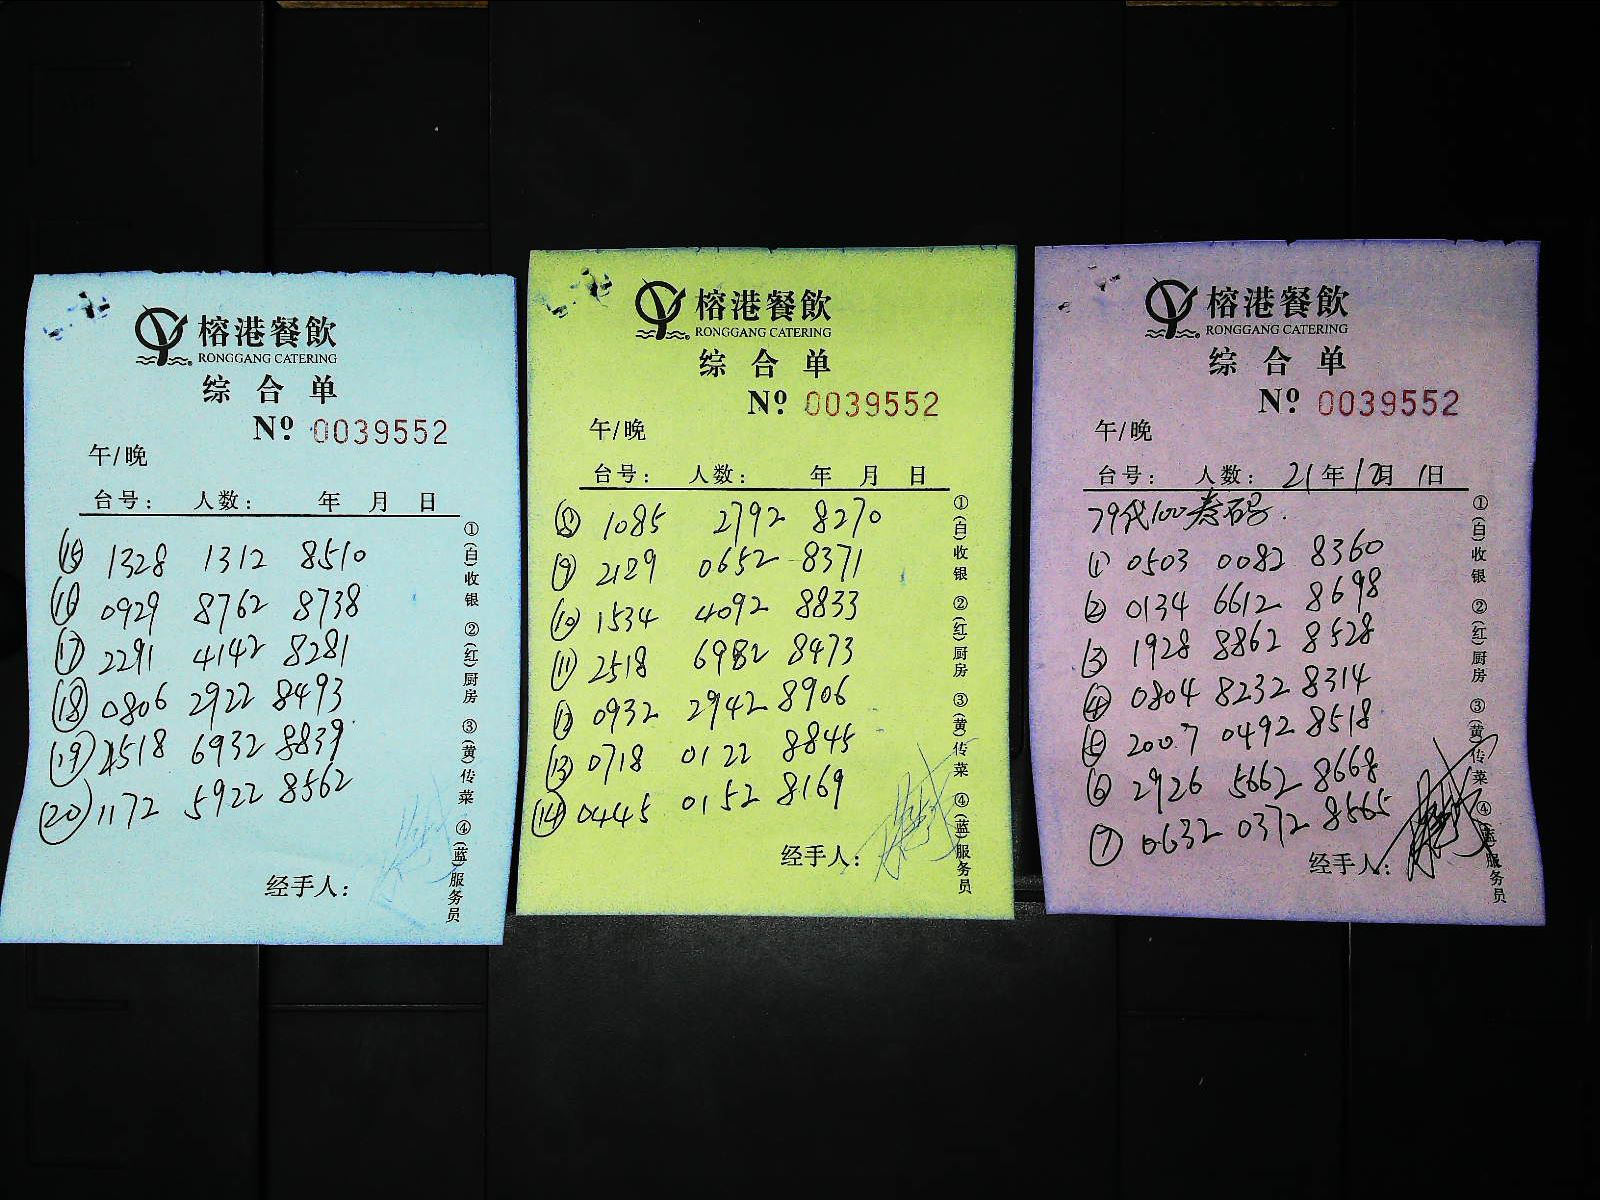 榕港餐飲
RONGGANG CATERING
综合单
Nº 0039552
午/晚
台号： 人数： 年 月 日
⑮ 1328 1312 8510
⑯ 0929 8762 8738
⑰ 2291 4142 8281
⑱ 0806 2922 8493
⑲ 1518 6932 8839
⑳ 1172 5922 8562
经手人：
①(白)收银 ②(红)厨房 ③(黄)传菜 ④(蓝)服务员
榕港餐飲
RONGGANG CATERING
综合单
Nº 0039552
午/晚
台号： 人数： 年 月 日
⑧ 1085 2792 8270
⑨ 2129 0652 8371
⑩ 1534 4092 8833
⑪ 2518 6982 8473
⑫ 0932 2942 8906
⑬ 0718 0122 8845
⑭ 0445 0152 8169
经手人：
①(白)收银 ②(红)厨房 ③(黄)传菜 ④(蓝)服务员
榕港餐飲
RONGGANG CATERING
综合单
Nº 0039552
午/晚
台号： 人数： 21年12月1日
79代100券码.
① 0503 0082 8360
② 0134 6612 8698
③ 1928 8862 8528
④ 0804 8232 8314
⑤ 2007 0492 8518
⑥ 2926 5662 8668
⑦ 0632 0372 8565
经手人：
①(白)收银 ②(红)厨房 ③(黄)传菜 ④(蓝)服务员